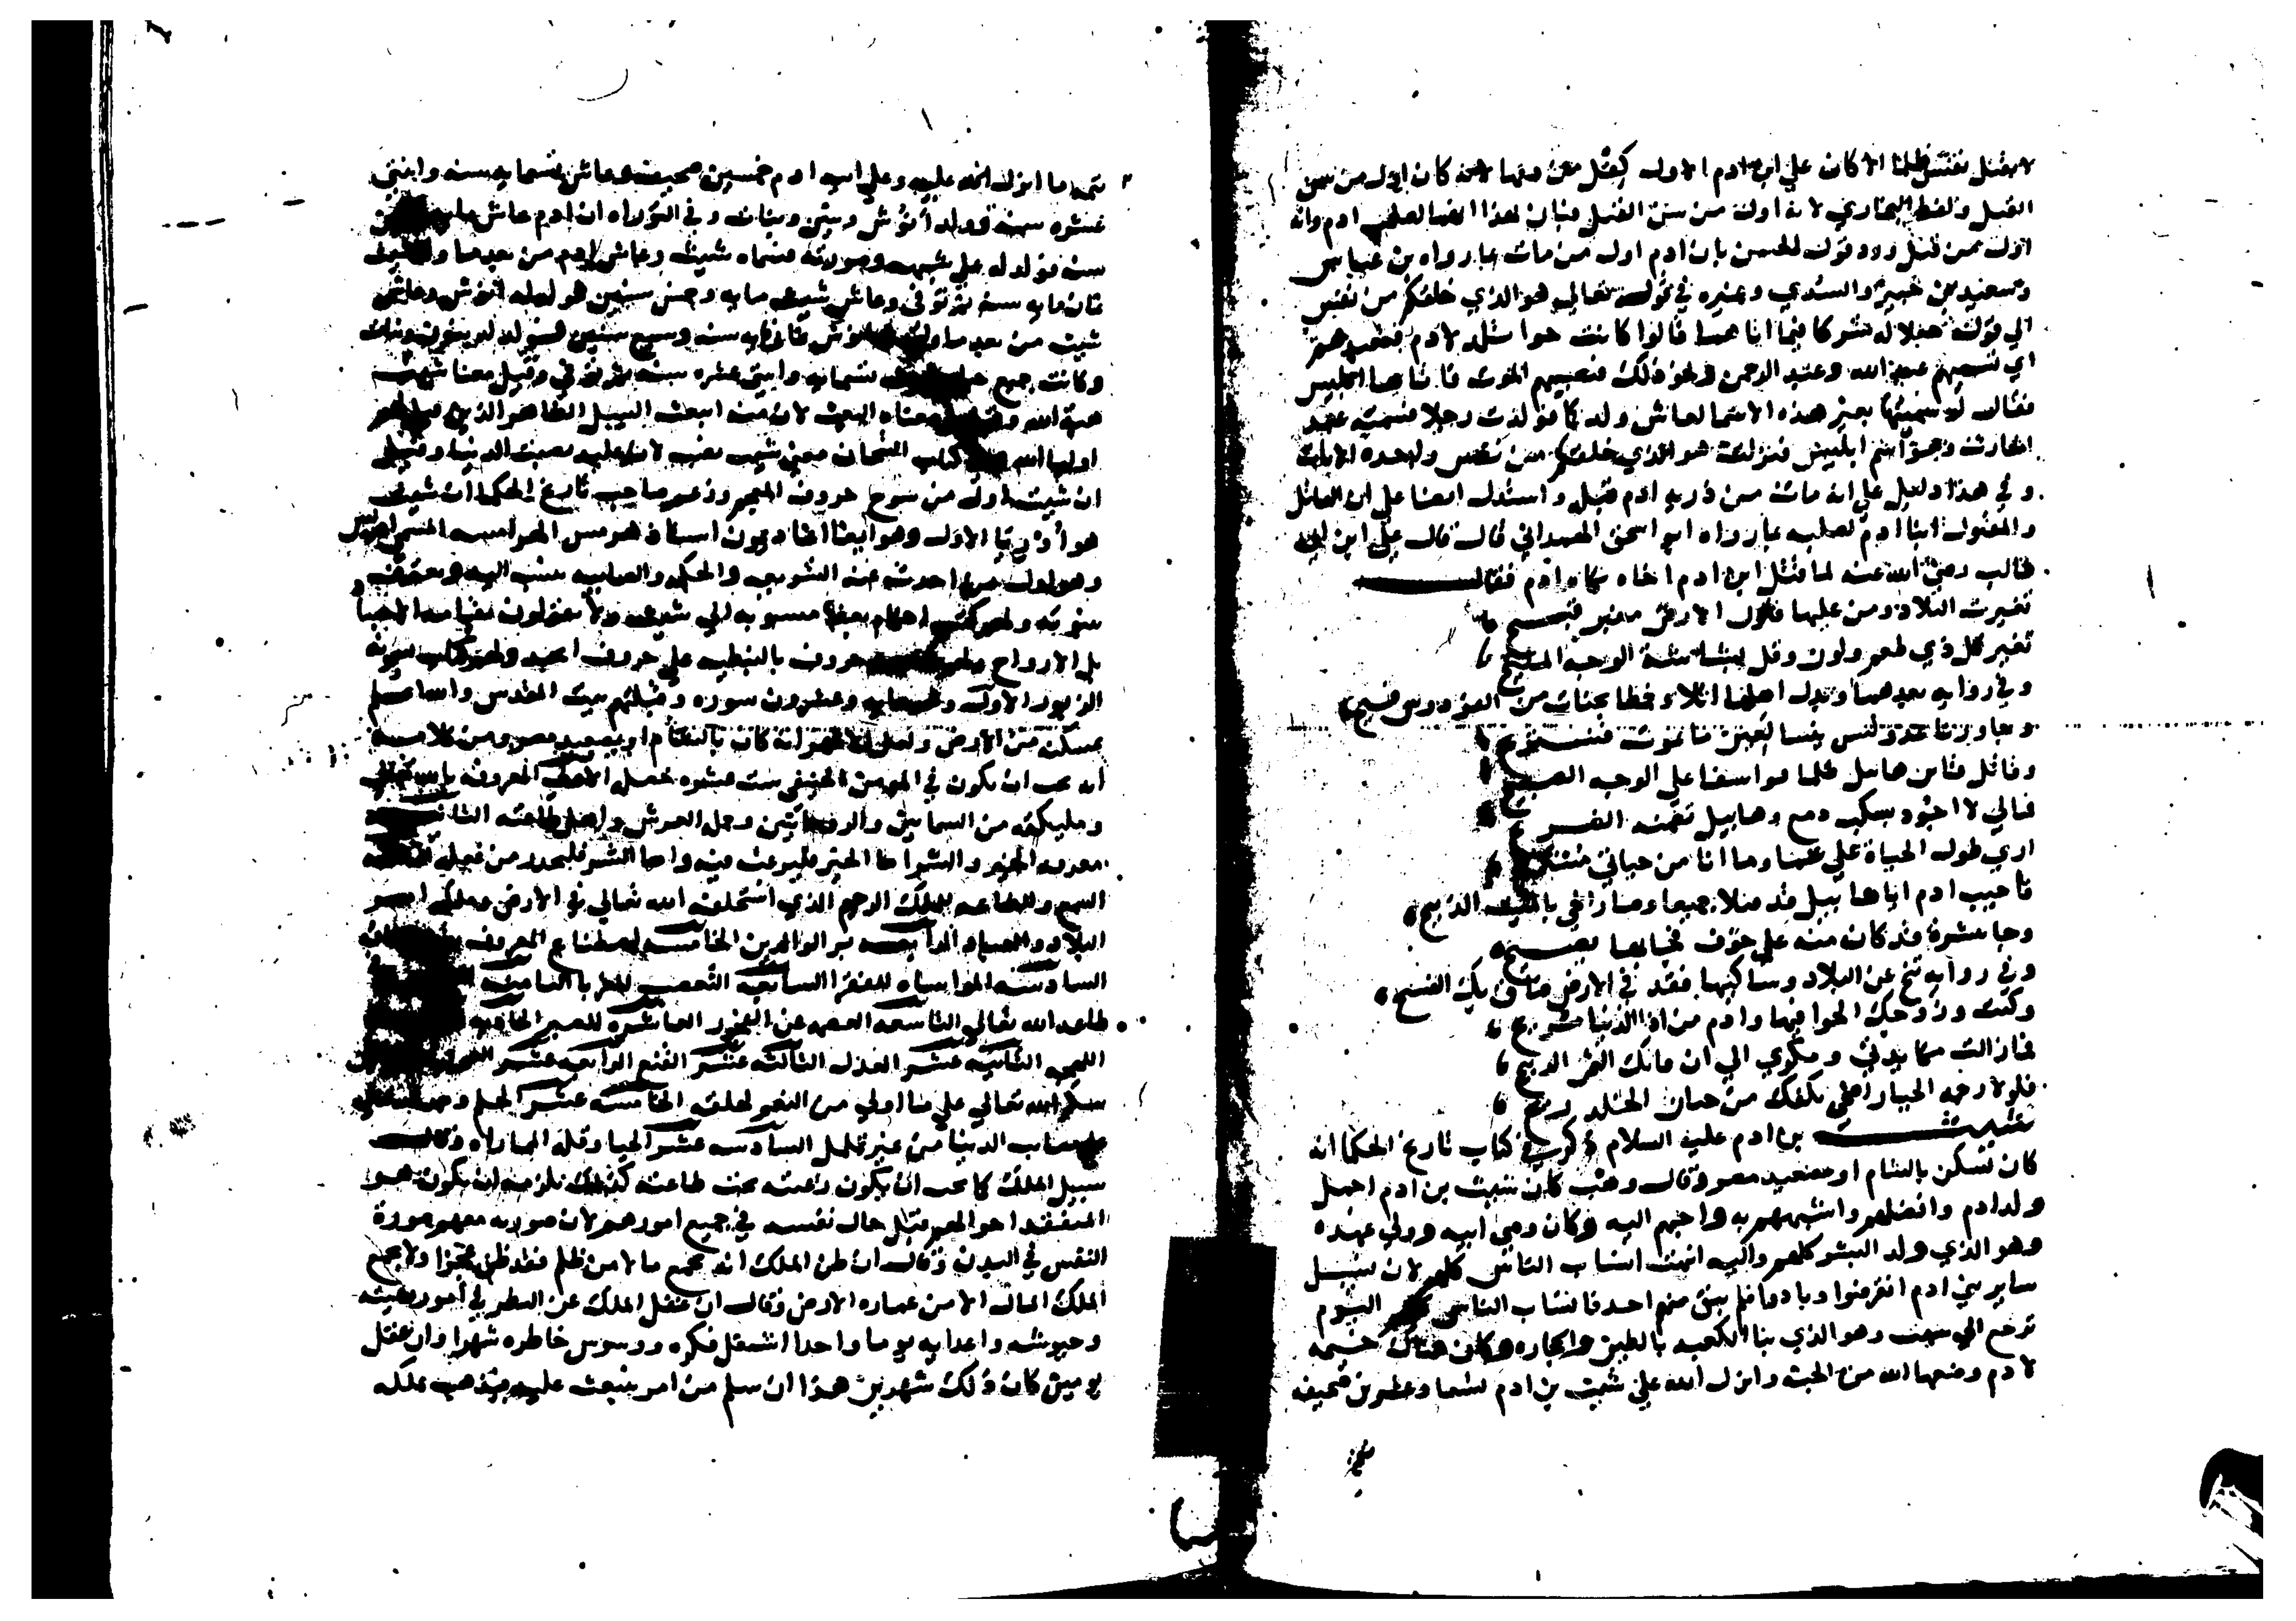 لا تقتل نفس ظلما الا كان علي ابن ادم الاول كفل من دمها لانه كان اول من سن
القتل ولفظ البخاري لانه اول من سن القتل فبان بهذا انهما لصلب ادم وانه
اول من قتل ورد قول الحسن بان ادم اول من مات بما رواه بن عباس
وسعيد بن جبير والسدي وغيره في قوله تعالي هو الذي خلقكم من نفس
الي قوله جعلا له شركا فيما اتاهما قالوا كانت حوا تلد لادم فتعبدهم
اي تسميهم عبد الله وعبد الرحمن ونحو ذلك فيصيبهم الموت فاتاهما ابليس
فقال لو سميتها بغير هذه الاسما لعاش ولدكما فولدت رجلا فسمته عبد
الحارث وهو اسم ابليس فنزلت هو الذي خلقكم من نفس واحده الايات
وفي هذا دليل علي انه مات من ذريه ادم قبله واستدل ايضا علي ان القاتل
والمقتول ابنا ادم لصلبه بما رواه ابو اسحق الهمداني قال قال علي ابن ابي
طالب رضي الله عنه لما قتل ابن ادم اخاه بكاه ادم فقال
تغيرت البلاد ومن عليها فلون الارض مغبر قبيح
تغير كل ذي طعم ولون وقل بشاشة الوجه المليح
وفي روايه بعدهما وبدل اهلها اثلا وخمطا بجنات من الفردوس فيح
وجاورنا عدو ليس ينسا لعين ما يموت فنستريح
وقاتل قاين هابيل ظلما فواسفا علي الوجه الصبيح
فمالي لا اجود بسكب دمع وهابيل تضمنه الضريح
اري طول الحياة علي غما وما انا من حياتي مستريح
فاجيب ادم اباهابيل قد قتلا جميعا وصار الحي بالميت الذبيح
وجا بشرة قد كان منه علي خوف فجا بها يصيح
وفي روايه تنح عن البلاد وساكنيها فقد في الارض ضاق بك الفسيح
وكنت وزوجك الحوا فيها وادم من اذا الدنيا مريح
فما زالت مكايدتي ومكري الي ان فاتك الثمن الربيح
فلولا رحمه الجبار اضحي بكفك من جنان الخلد ريح
شيث بن ادم عليه السلام ذكر في كتاب تاريخ الحكما انه
كان يسكن بالشام او بصعيد مصر وقال وهب كان شيث بن ادم اجمل
ولد ادم وافضلهم واشبههم به واحبهم اليه وكان وصي ابيه وولي عهده
وهو الذي ولد البشر كلهم واليه انتهت انساب الناس كلهم لان نسل
ساير بني ادم انقرضوا وبادوا فلم يبق منهم احد فانساب الناس اليوم
ترجع الي شيث وهو الذي بنا الكعبه بالطين والحجاره وكان هناك خيمه
لادم وضعها الله من الجنه وانزل الله علي شيث بن ادم تسعا وعشرين صحيفه
تتمه ما انزل الله عليه وعلي ابيه ادم خمسين صحيفه وعاش تسعمايه سنه واثني
عشره سنه وولد أنوش وبنين وبنات وفي التوراه ان ادم عاش
سنه فولد له علي شبهه وصورته فسماه شيث وعاش ادم من بعد ما ولد شيث
ثمان مايه سنه ثم توفي وعاش شيث مايه وخمس سنين فولد له انوش وعاش
شيث من بعد ما ولد انوش ثمانمايه سنه وسبع سنين
وكانت جميع تسعمايه واثني عشره سنه ثم توفي وقيل معنا شيث
هبة الله معناه البعث لان منه انبعث النسل الطاهر الذين
اوليا الله كتاب التيجان معني شيث نصب لان عليه نصبت الدنيا وقيل
ان شيث اول من شرح حروف المعجم وزعم صاحب تاريخ الحكما ان شيث
هو أوريا الاول وهو ايضا اغاذيمون استاذ هرمس الهرامسه المسمي ادريس
وهو اول من احدث عنه الشرايع والحكم والصابيه تنسب اليه وتعترف
بنبوته ولهم كتب احكام منسوبه الي شيث ولا يقولون بقيامه الاجساد
بل الارواح حروف بالنبطيه علي حروف ابجد ولهم كتاب سموه
الزبور الاول وعشرون سوره وقبلتهم بيت المقدس والله اعلم
بمسكنه من الارض ولعل الاظهر انه كان بالشام او بصعيد مصر ومن كلامه
انه يجب ان يكون في المومن الحنيفي ست عشره خصله الاولي المعرفه بالله تعالي
ومليكته من السمايين والروحانيين وحمل العرش واهل طاعته الثانيه
معرفه الخير والشر اما الخير فليرغب فيه واما الشر فليحذر من فعله الثالثه
السمع والطاعه للملك الرحيم الذي استخلفه الله تعالي في الارض وملكه امر
البلاد والعباد الرابعه بر الوالدين الخامسه اصطناع المعروف
السادسه المواساه للفقرا السابعه التعصب للغربا الثامنه
طاعه الله تعالي التاسعه العصمه عن الفجور العاشره للصبر الحاديه
اللهجه الثانيه عشر العدل الثالثه عشر القنع الرابعه عشر
شكر الله تعالي علي ما اولي من النعم لخلقه الخامسه عشر الحلم
علي مصاب الدنيا من غير تململ السادسه عشر الحيا وقله المماراه وقال
سبيل الملك كما يحب ان يكون رعيته تحت طاعته كذلك يلزمه ان يكون هو
المتفقد احوالهم قبل حال نفسه في جميع امورهم لان صورته معهم صورة
النفس في البدن وقال ان ظن الملك انه يجمع مالا من ظلم فقد ظن عجزا ولا يجمع
الملك المال الا من عماره الارض وقال ان غفل الملك عن النظر في أمور رعيته
وجيوشه واعدايه يوما واحدا اشتغل فكره ووسوس خاطره شهرا وان غفل
يومين كان ذلك شهرين هذا ان سلم من امر ينبعث عليه فيذهب بملكه